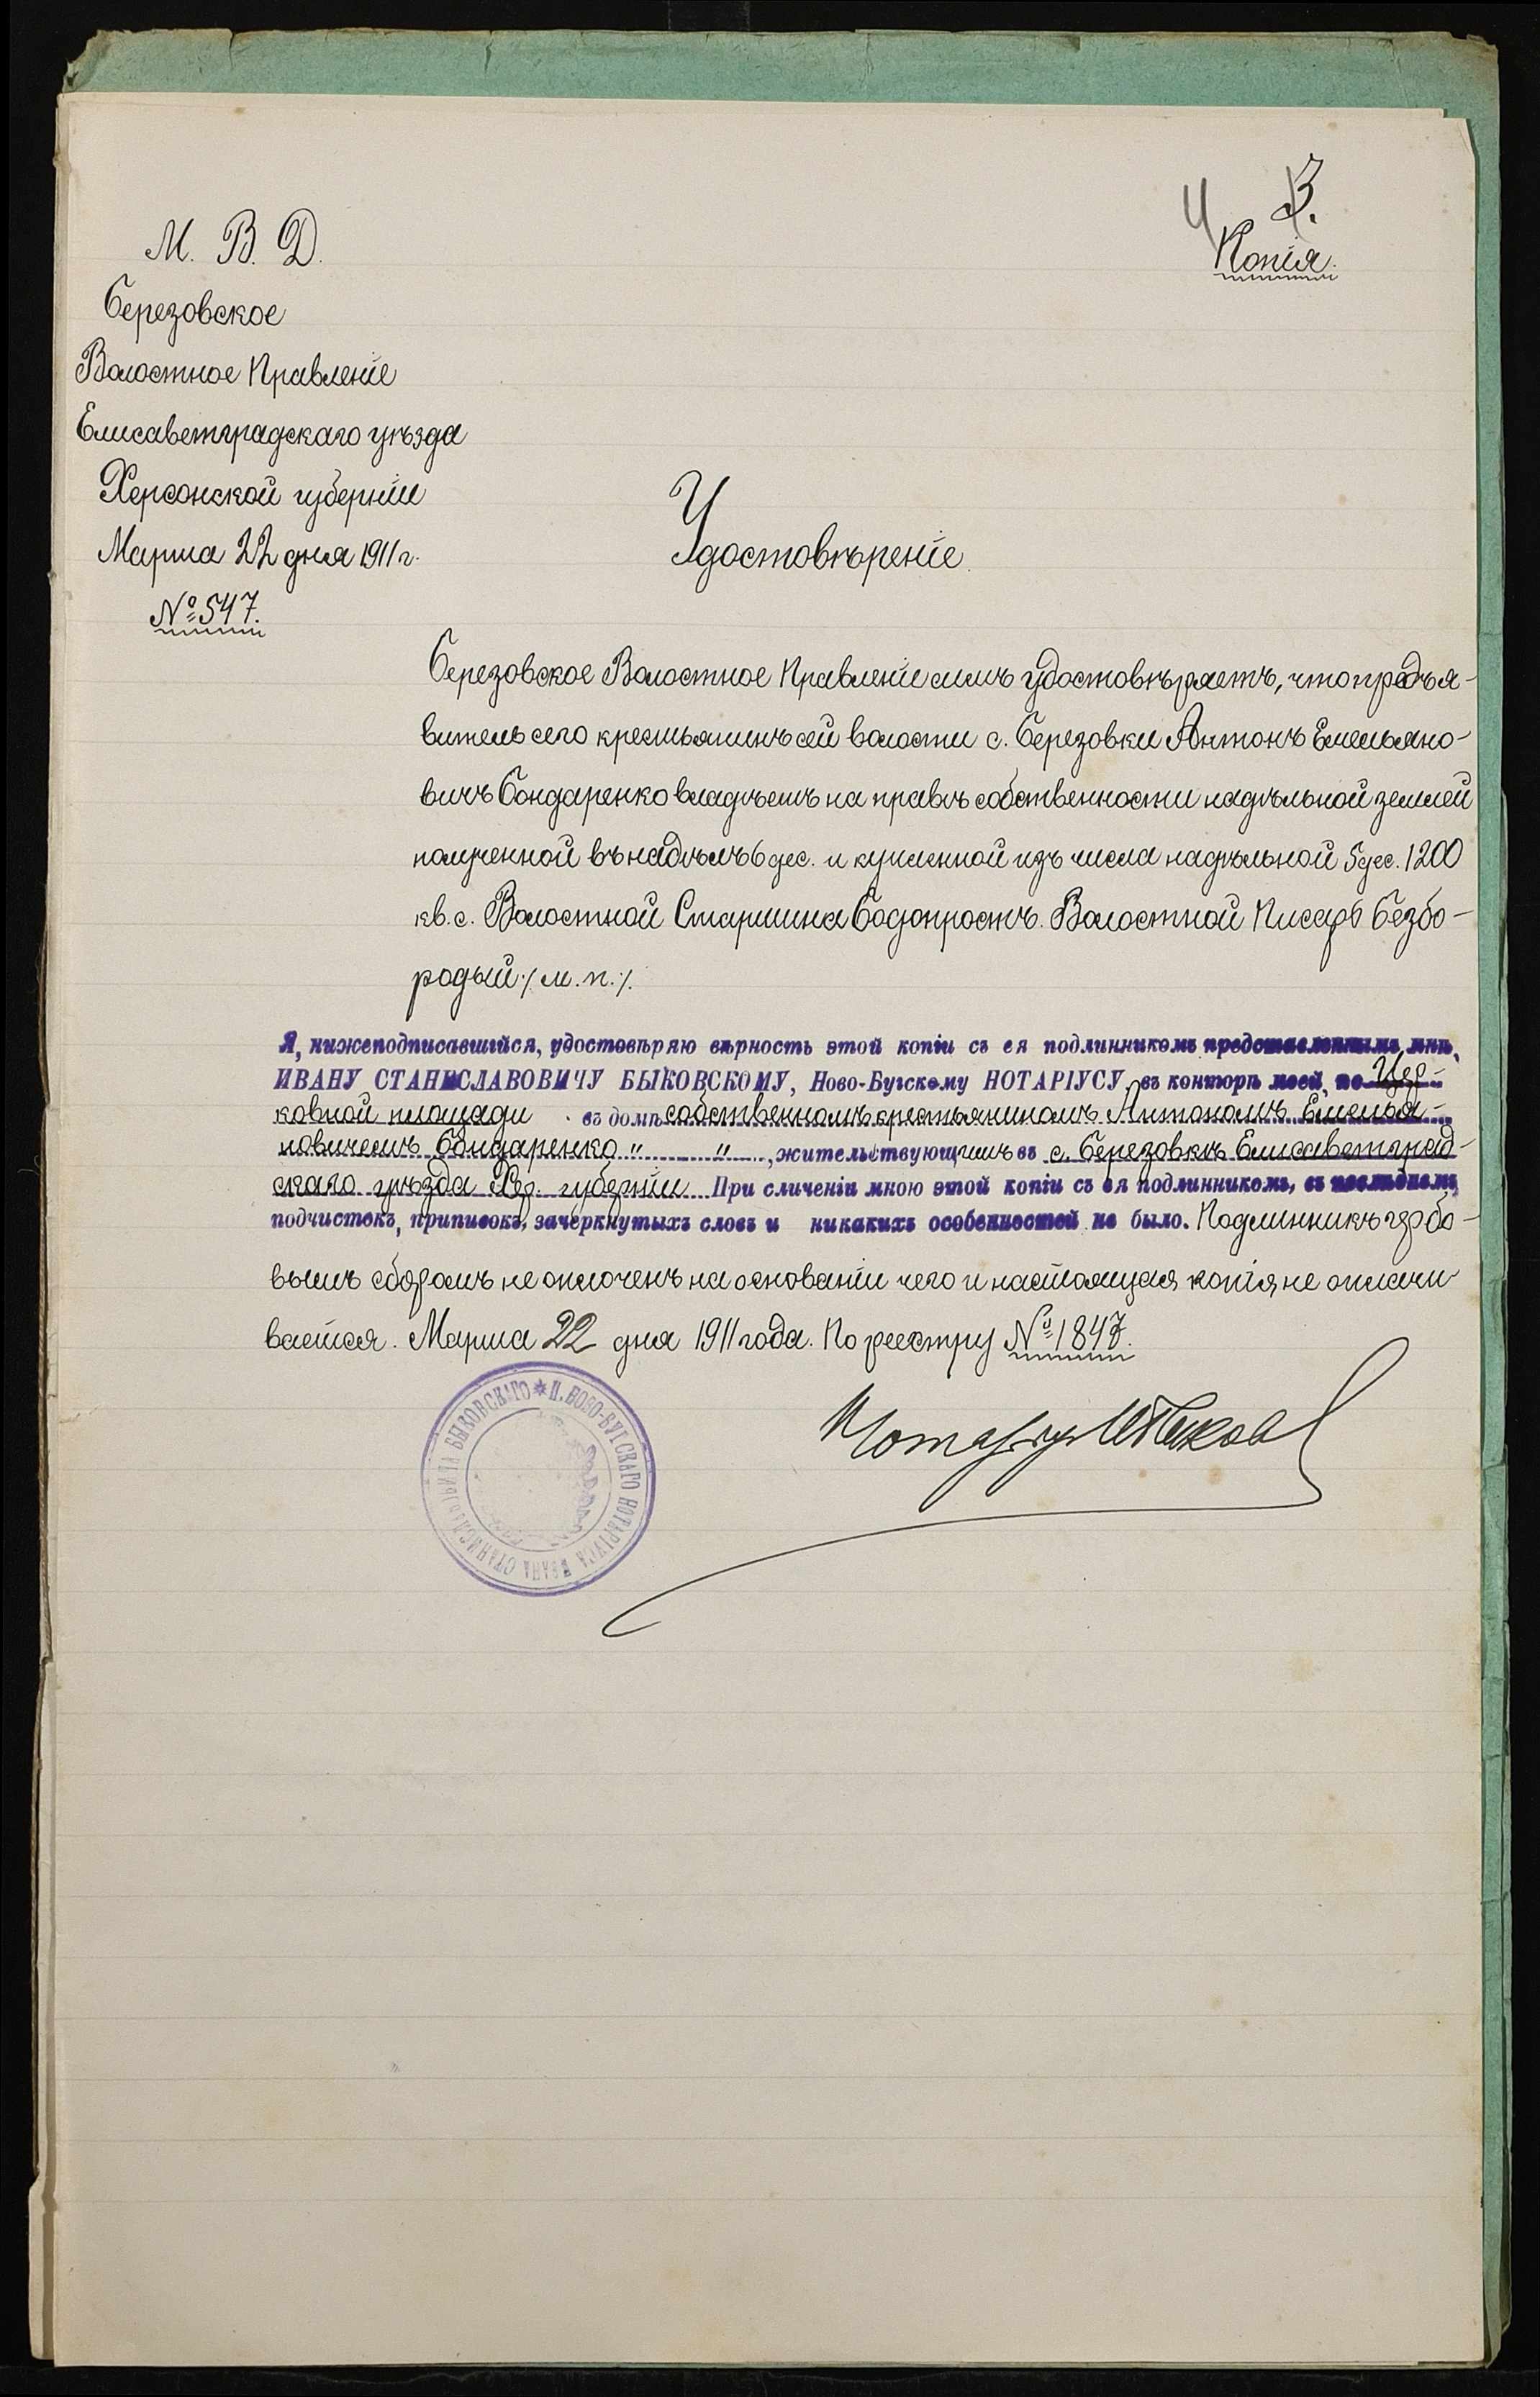 4 3.
Копія.
М. В. Д.
Березовское
Волостное Правленіе
Елисаветградскаго уѣзда
Херсонской губерніи
Марта 22 дня 1911 г.
№ 547.
Удостовѣреніе.
Березовское Волостное Правленіе симъ удостовѣряетъ, что предъя-
витель сего крестьянинъ сей волости с. Березовки Антонъ Емельяно-
вичъ Бондаренко владѣетъ на правѣ собственности надѣльной землей
полученной въ надѣлъ 6 дес. и купленной изъ числа надѣльной 5 дес. 1200
кв. с. Волостной Старшина Водопростъ. Волостной Писарь Безбо-
родый ./. м. п. ./.
Я, нижеподписавшійся, удостовѣряю вѣрность этой копіи съ ея подлинникомъ представленнымъ мнѣ,
ИВАНУ СТАНИСЛАВОВИЧУ БЫКОВСКОМУ, Ново-Бугскому НОТАРІУСУ, въ конторѣ моей, по Цер-
ковной площади въ домѣ собственномъ крестьяниномъ Антономъ Емелья-
новичемъ Бондаренко " " , жительствующимъ въ с. Березовкѣ Елисаветград-
скаго уѣзда Хер. губерніи При сличеніи мною этой копіи съ ея подлинникомъ, въ послѣднемъ
подчистокъ, приписокъ, зачеркнутыхъ словъ и никакихъ особенностей не было. Подлинникъ гербо-
вымъ сборомъ не оплоченъ на основаніи чего и настоящая копія не оплачи-
вается. Марта 22 дня 1911 года. По реестру № 1847.
Нотаріусъ
Н. НОВО-БУГСКАГО НОТАРІУСА ИВАНА СТАНИСЛАВОВИЧА БЫКОВСКАГО